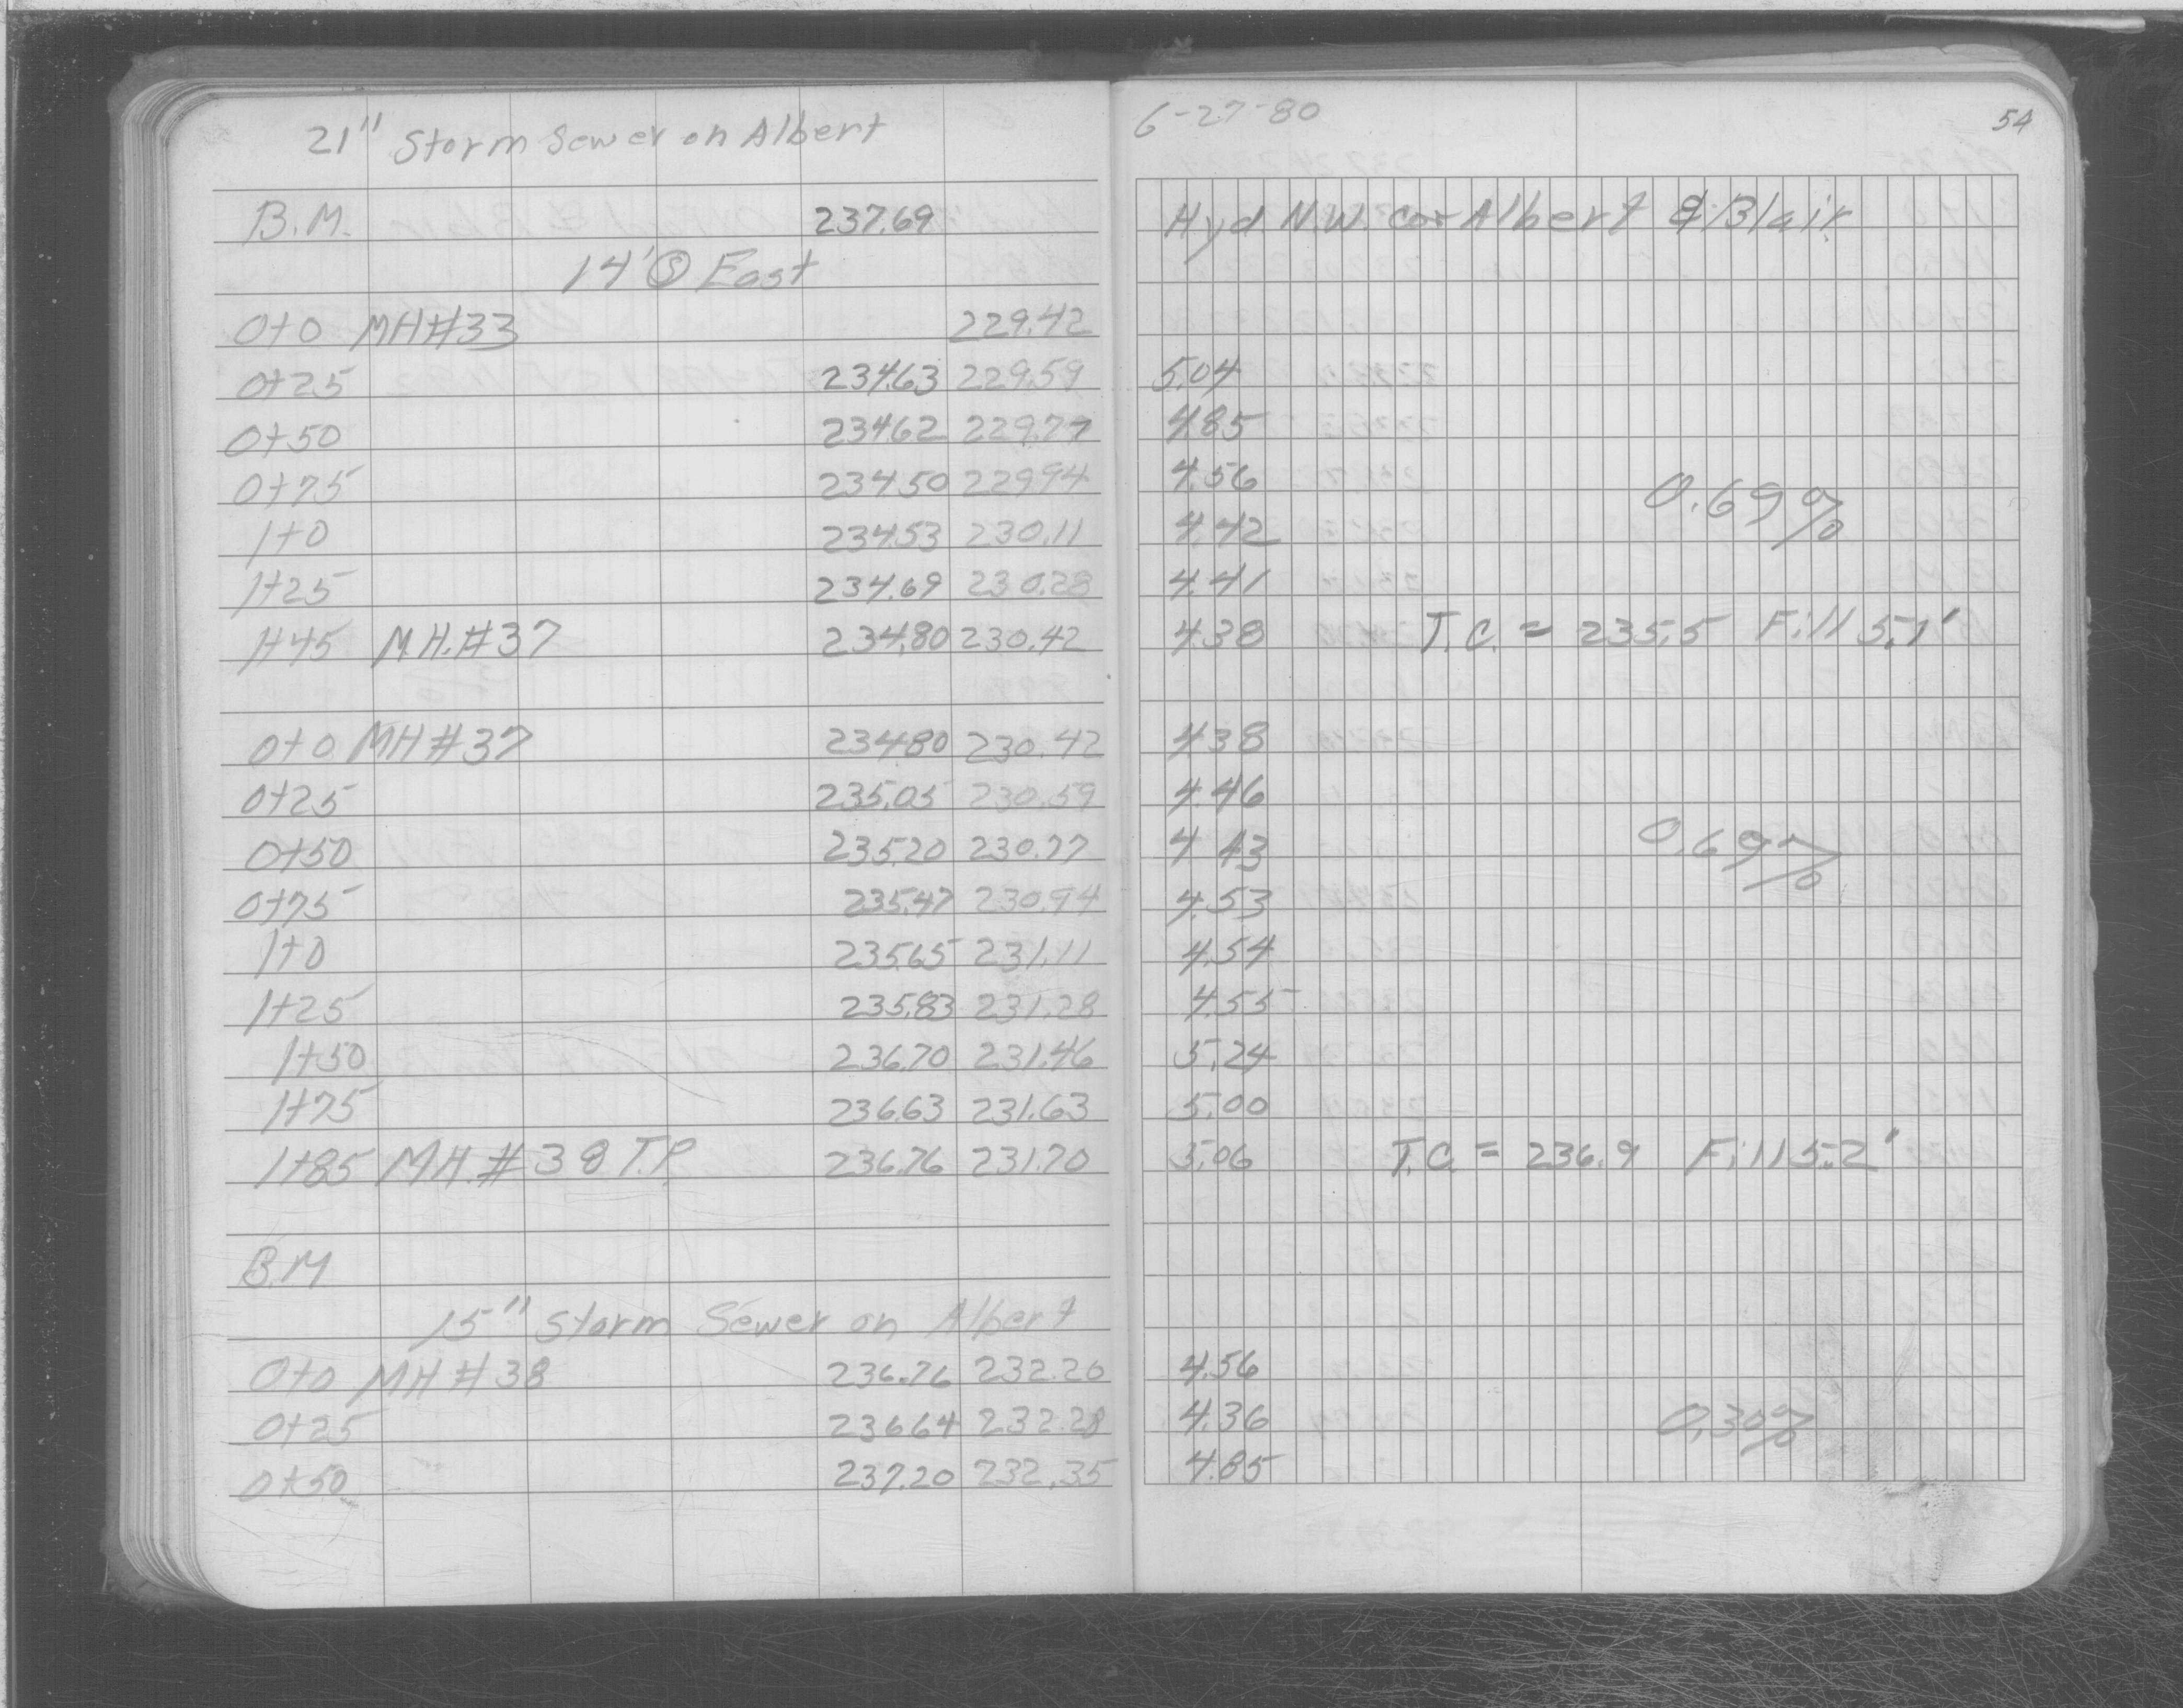 21" Storm Sewer on Albert
6-27-80
54
B.M. 237.69 Hyd N.W. cor Albert & Blair
14' Ⓢ East
0+0 MH#33 229.42
0+25 234.63 229.59 5.04
0+50 234.62 229.77 4.85
0+75 234.50 229.94 4.56 0.69%
1+0 234.53 230.11 4.42
1+25 234.69 230.28 4.41
1+45 M.H.#37 234.80 230.42 4.38 T.C. = 235.5 Fill 5.1'
0+0 MH#37 234.80 230.42 4.38
0+25 235.05 230.59 4.46
0+50 235.20 230.77 4.43 0.69%
0+75 235.47 230.94 4.53
1+0 235.65 231.11 4.54
1+25 235.83 231.28 4.55
1+50 236.70 231.46 5.24
1+75 236.63 231.63 5.00
1+85 MH.#38 T.P. 236.76 231.70 5.06 T.C. = 236.9 Fill 5.2'
B.M
15" Storm Sewer on Albert
0+0 MH#38 236.76 232.20 4.56
0+25 236.64 232.28 4.36 0.30%
0+50 237.20 232.35 4.85